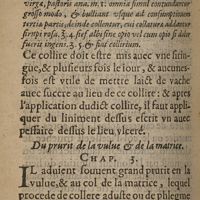 virga, pastoris ana. m. 1: omnia simul contundantur
grosso modo, & bulliant usque ad consumptionem
tertiæ partis, deinde colentur, cui colaturæ addantur
sirupi rosa. ℥. 4. sief albi sine opio vel cum opio si dolor
fuerit ingens. ℥. 5. & fiat collirium.
Ce collire doit estre mis auec vne sirin-
gue, & plusieurs fois le iour, & aucunes-
fois est vtile de mettre laict de vache
auec succre au lieu de ce collire : & apres
l'application dudict collire, il faut appli-
quer du liniment dessus escrit vn auec
pessaire dessus le lieu vlceré.
Du prurit de la vulue & de la matrice.
CHAP. 3.
IL aduient souuent grand prurit en la
vulue, & au col de la matrice, lequel
procede de collere aduste ou de phlegme